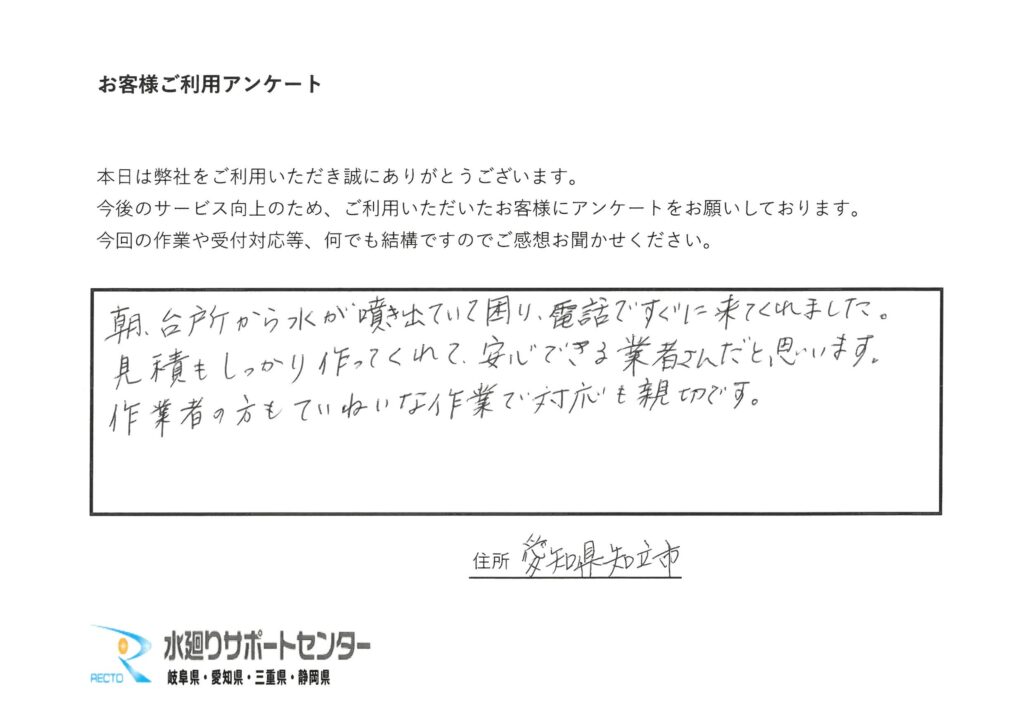 お客様ご利用アンケート
本日は弊社をご利用いただき誠にありがとうございます。
今後のサービス向上のため、ご利用いただいたお客様にアンケートをお願いしております。
今回の作業や受付対応等、何でも結構ですのでご感想お聞かせください。
朝、台所から水が噴き出ていて困り、電話ですぐに来てくれました。
見積もしっかり作ってくれて、安心できる業者さんだと思います。
作業者の方もていねいな作業で対応も親切です。
住所 愛知県知立市
水廻りサポートセンター
RECTO 岐阜県・愛知県・三重県・静岡県